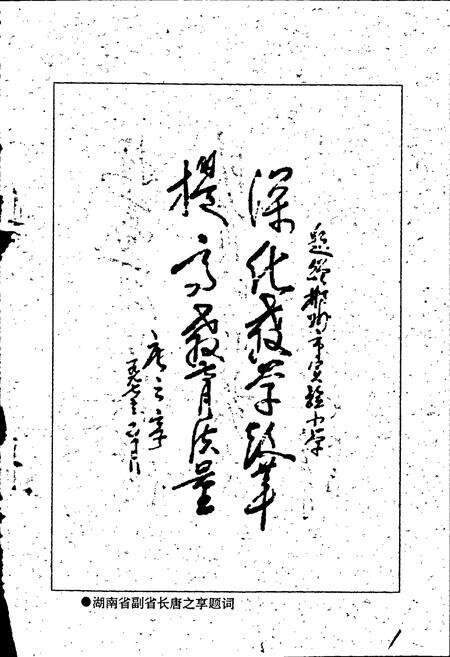 题给郴州市实验小学
深化教学改革
提高教育质量
唐之享
●湖南省副省长唐之享题词
1